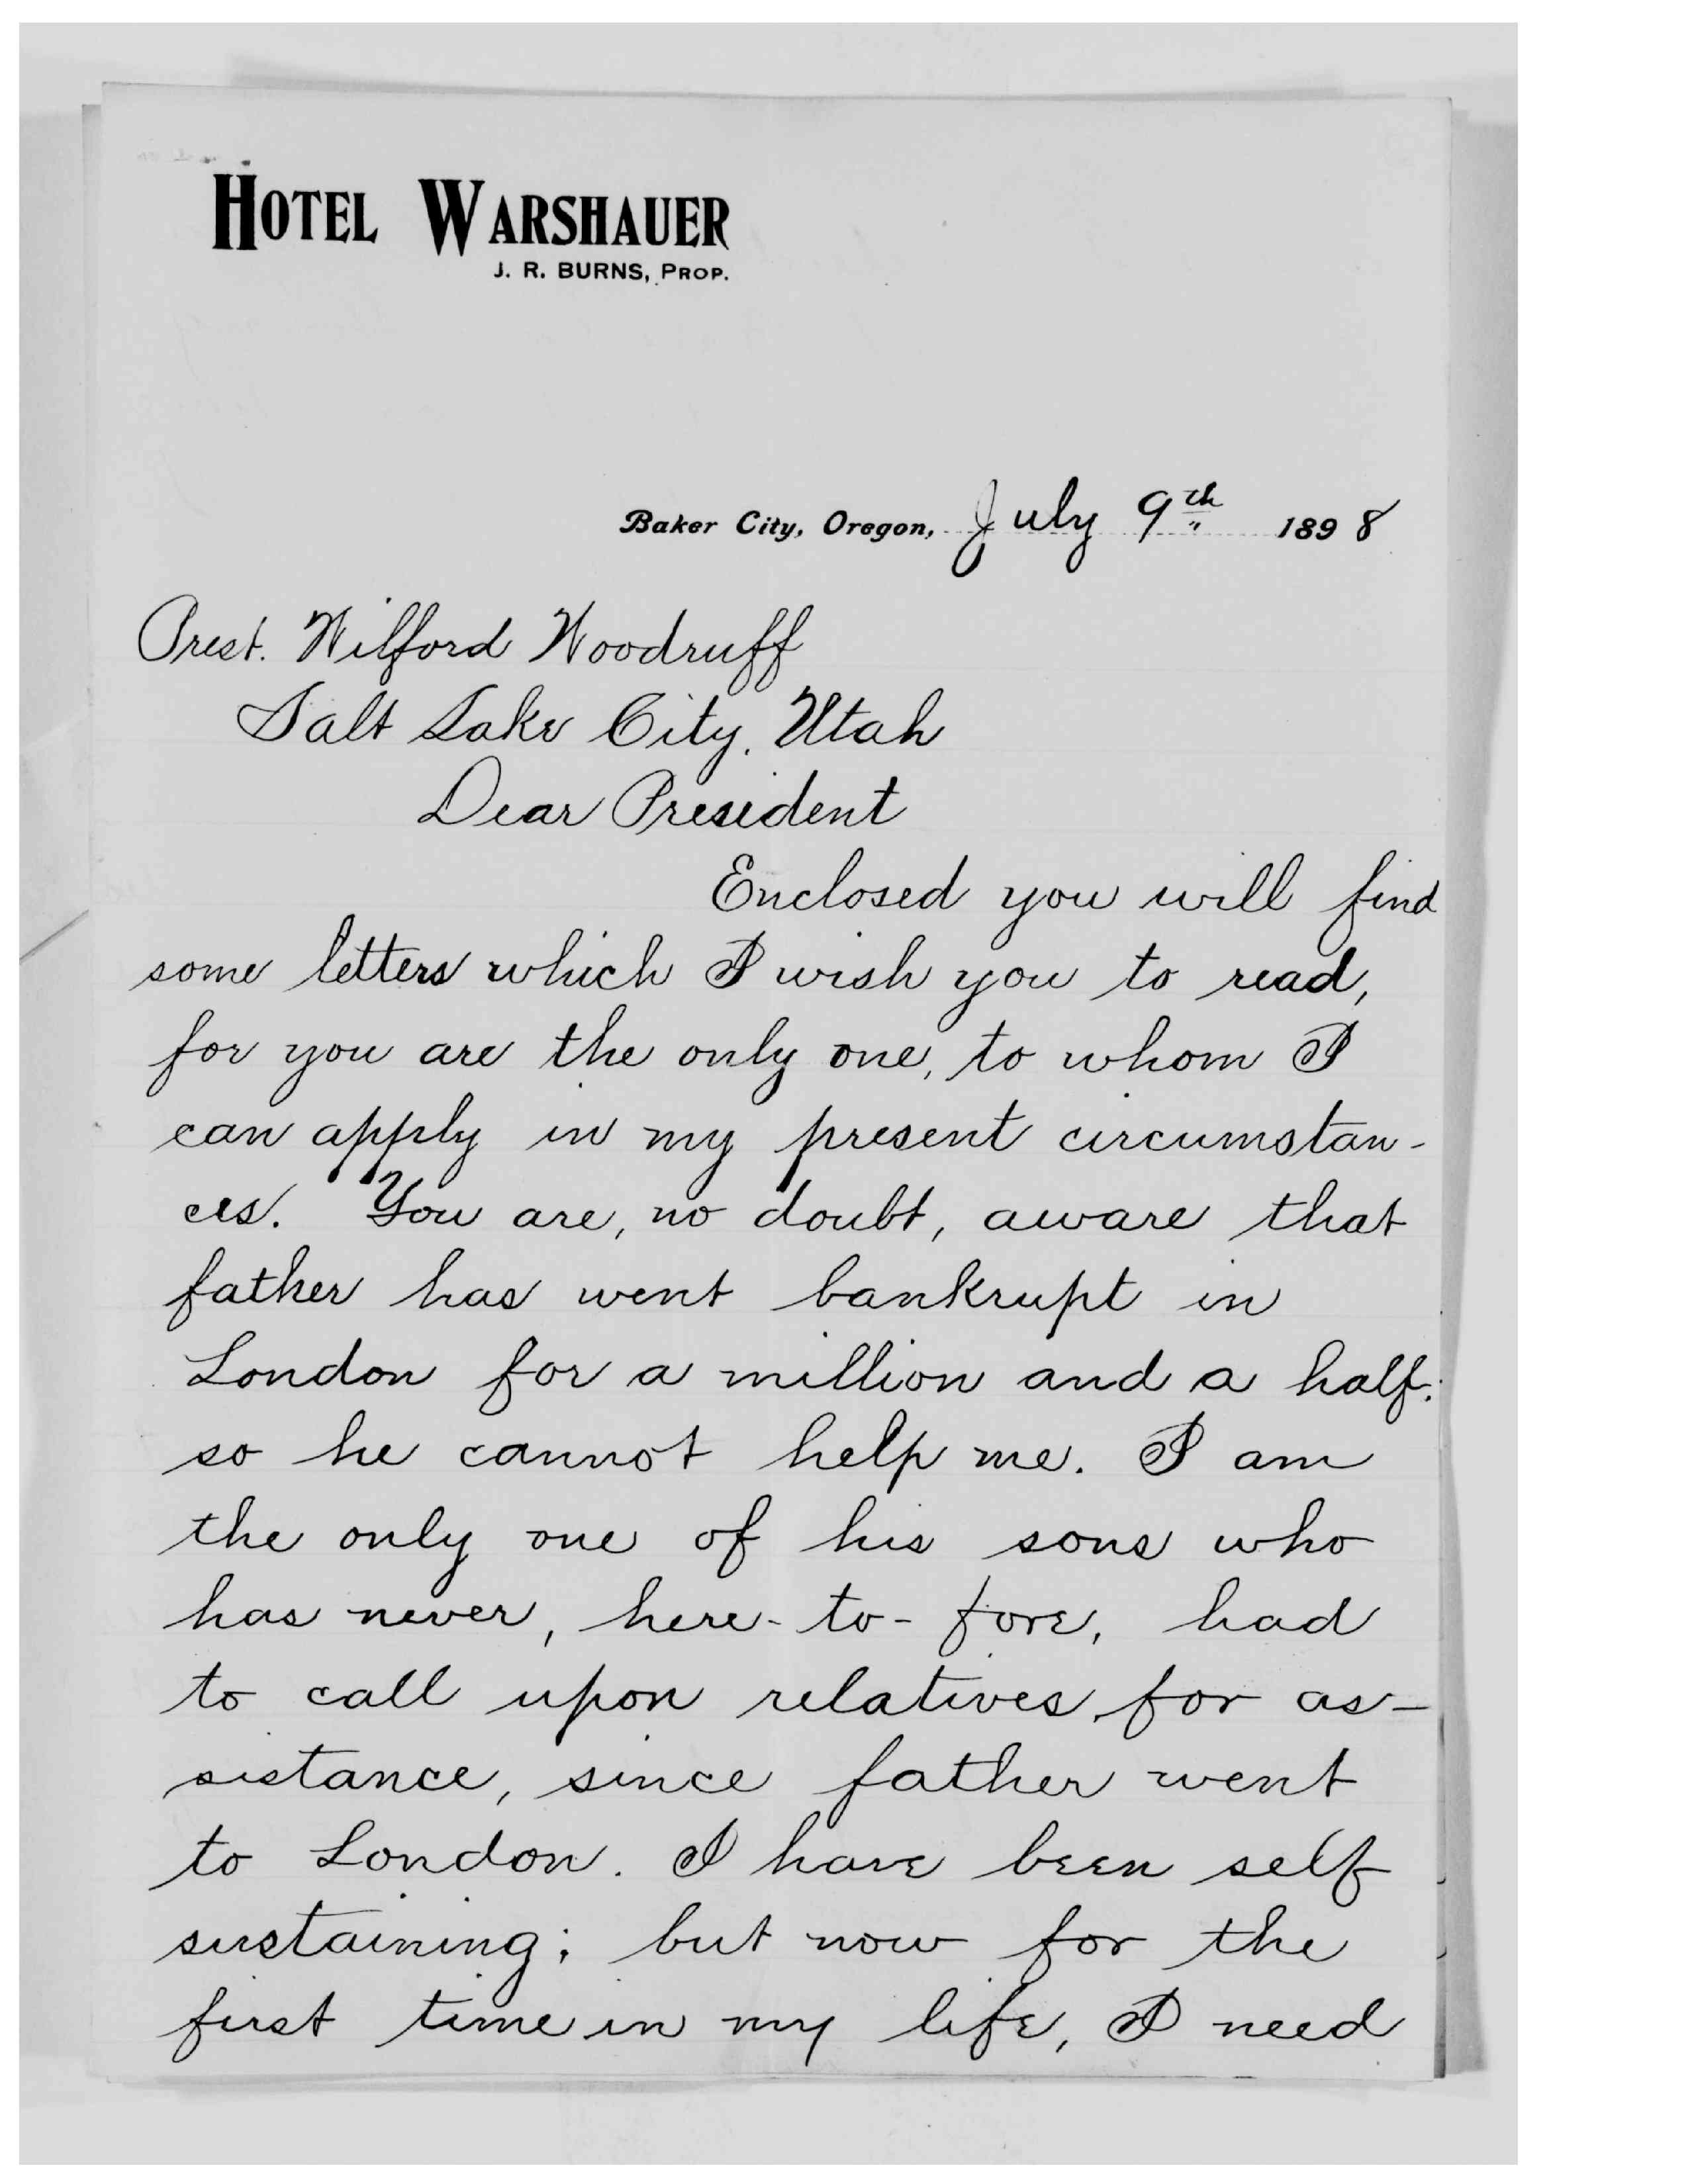 HOTEL WARSHAUER
J. R. BURNS, PROP.
Baker City, Oregon, July 9th 1898
Prest. Wilford Woodruff
Salt Lake City, Utah
Dear President
Enclosed you will find
some letters which I wish you to read,
for you are the only one, to whom I
can apply in my present circumstan-
ces. You are, no doubt, aware that
father has went bankrupt in
London for a million and a half;
so he cannot help me. I am
the only one of his sons who
has never, here-to-fore, had
to call upon relatives for as-
sistance, since father went
to London. I have been self
sustaining; but now for the
first time in my life, I need